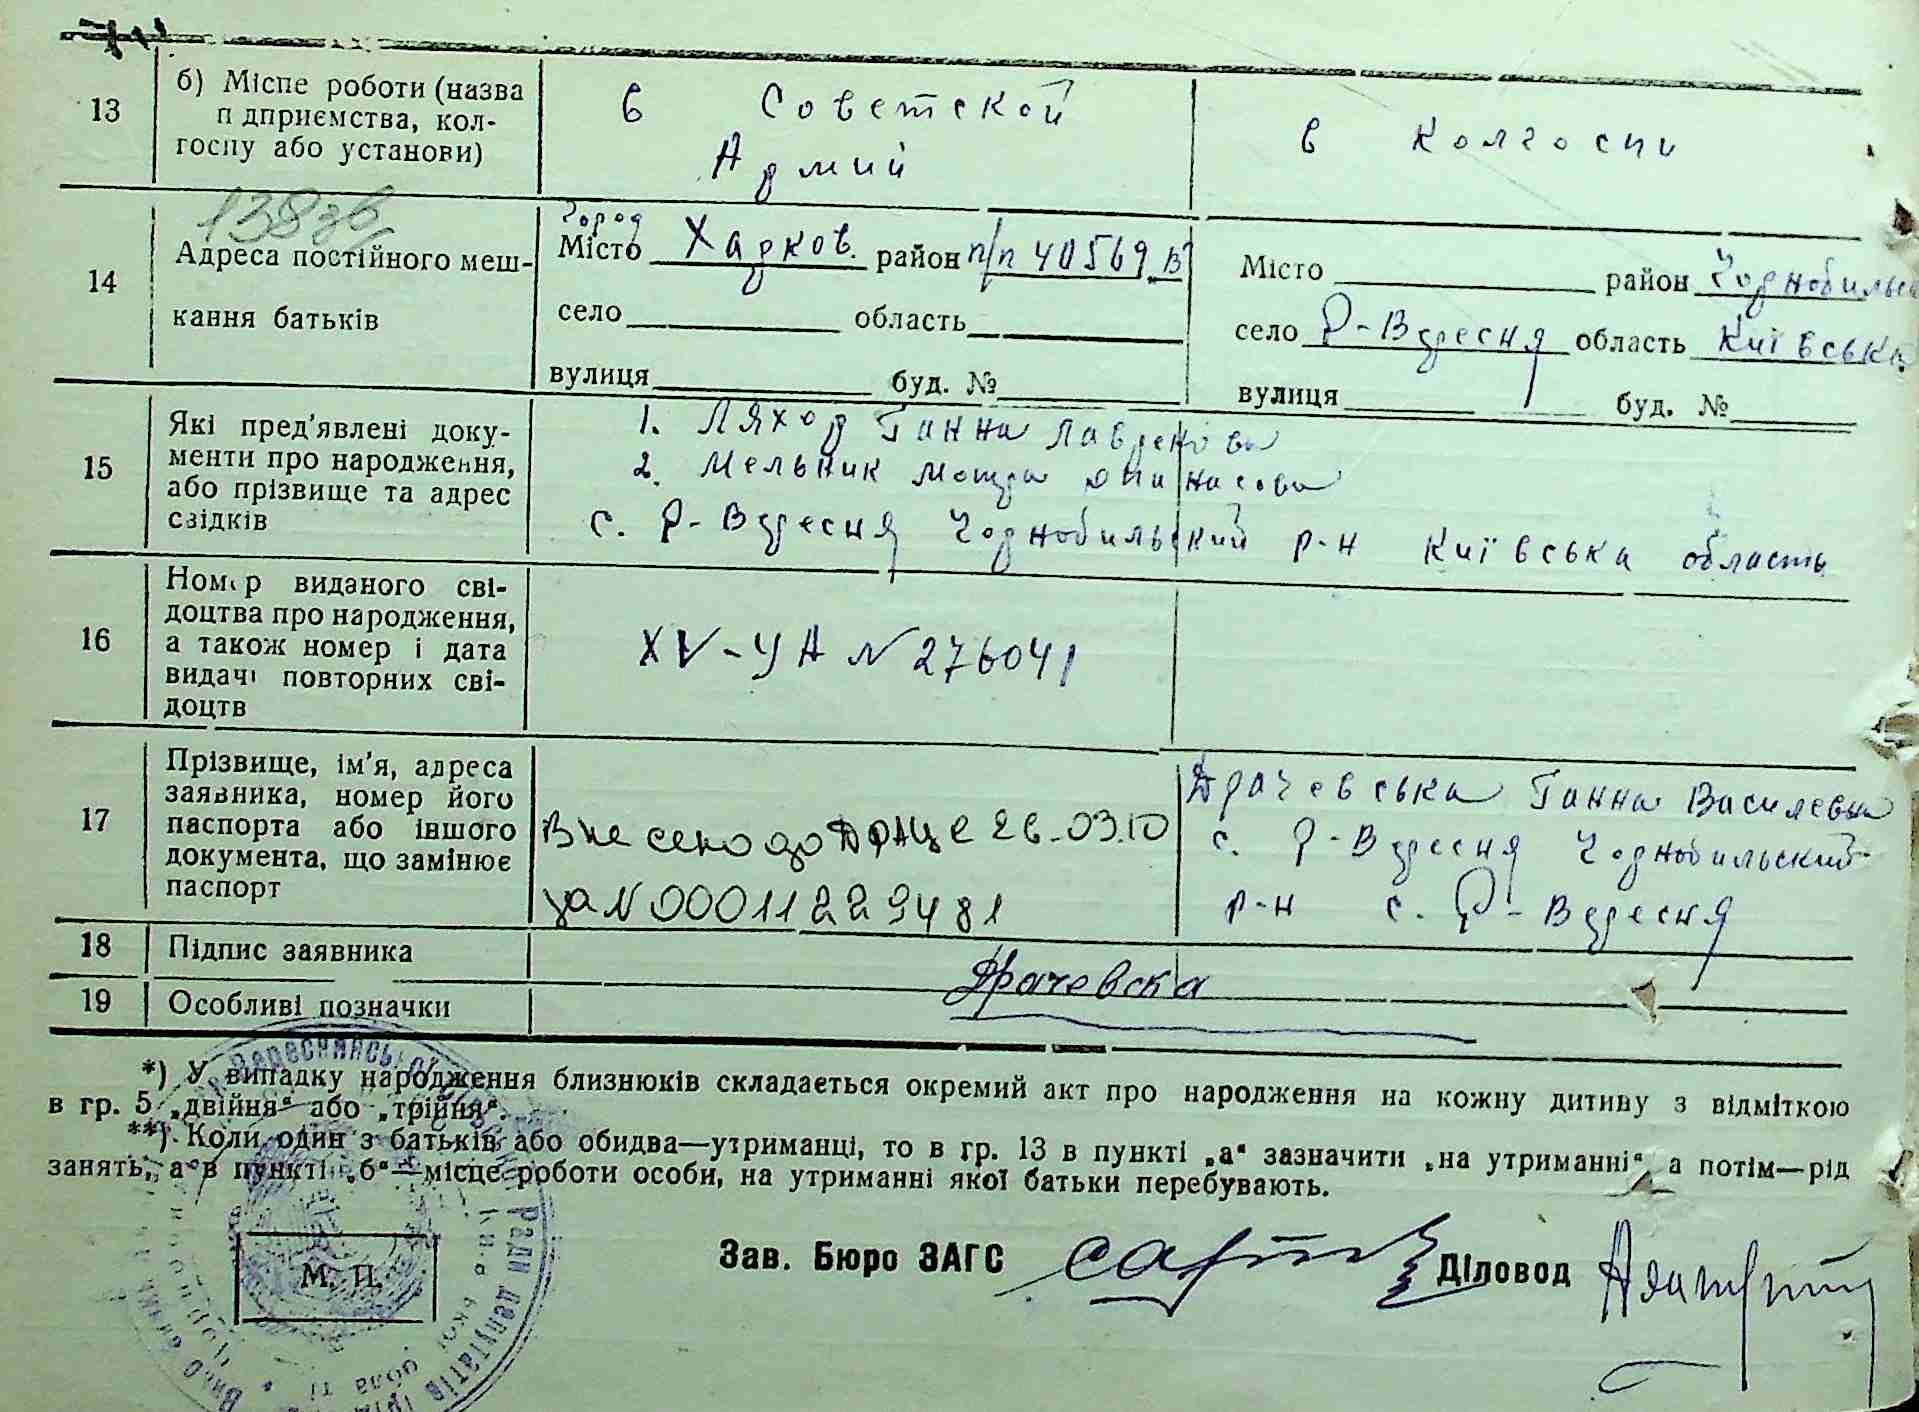 13
б) Місце роботи (назва
п дприємства, кол-
госпу або установи)
в Советской
Армий
в колгоспи
138зв
14
Адреса постійного меш-
кання батьків
город
Місто Харков. район п/п 40569 В
село область
вулиця буд. №
Місто район Чорнобильс
село Р-Вересня область Київська
вулиця буд. №
15
Які пред'явлені доку-
менти про народження,
або прізвище та адрес
свідків
1. Ляхор Ганна Лавренова
2. Мельник Мотря Опанасова
с. Р-Вересня Чорнобильский р-н Київська область
16
Номер виданого сві-
доцтва про народження,
а також номер і дата
видачі повторних сві-
доцтв
XV-УА N 276041
17
Прізвище, ім'я, адреса
заявника, номер його
паспорта або іншого
документа, що замінює
паспорт
Внесено до ДРАЦС 26.03.10
за N 00011229481
Драчевська Ганна Василевна
с. Р-Вересня Чорнобильский
р-н с. Р-Вересня
18
Підпис заявника
Драчевска
19
Особливі позначки
*) У випадку народження близнюків складається окремий акт про народження на кожну дитину з відміткою
в гр. 5 „двійня“ або „трійня“.
**) Коли один з батьків або обидва—утриманці, то в гр. 13 в пункті „а“ зазначити „на утриманні“ а потім—рід
занять, а в пункті „б“—місце роботи особи, на утриманні якої батьки перебувають.
М. П.
Зав. Бюро ЗАГС
Діловод